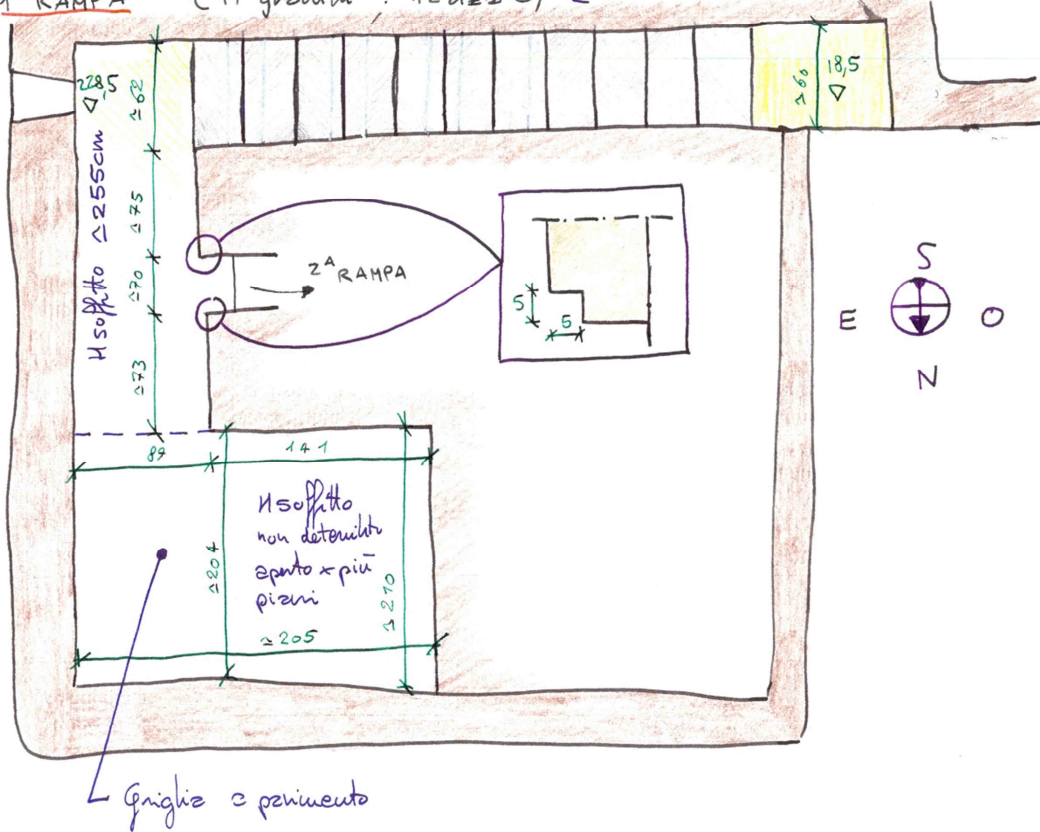 1 RAMPA
228,5
≃62
≃60
18,5
H soffitto ≃255cm
≃75
≃70
≃73
2ᴬ RAMPA
5
5
S
E
O
N
89
141
H soffitto
non determinto
aperto x più
piani
≃204
≃210
≃205
Griglia a pavimento